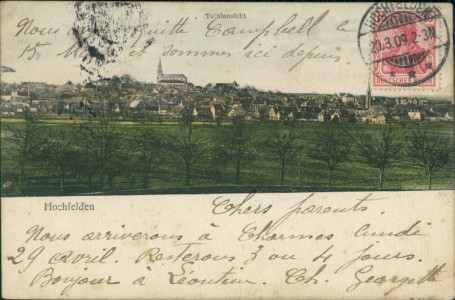 Totalansicht
Nous avons quitté Campbell le
15 M et sommes ici depuis.
HOCHFELDEN
20.3.09.2-3N
Hochfelden
Chers parents.
Nous arriverons à Charmes lundi
29 avril. Resterons 3 ou 4 jours.
Bonjour à Léontine. Ch. Georgette